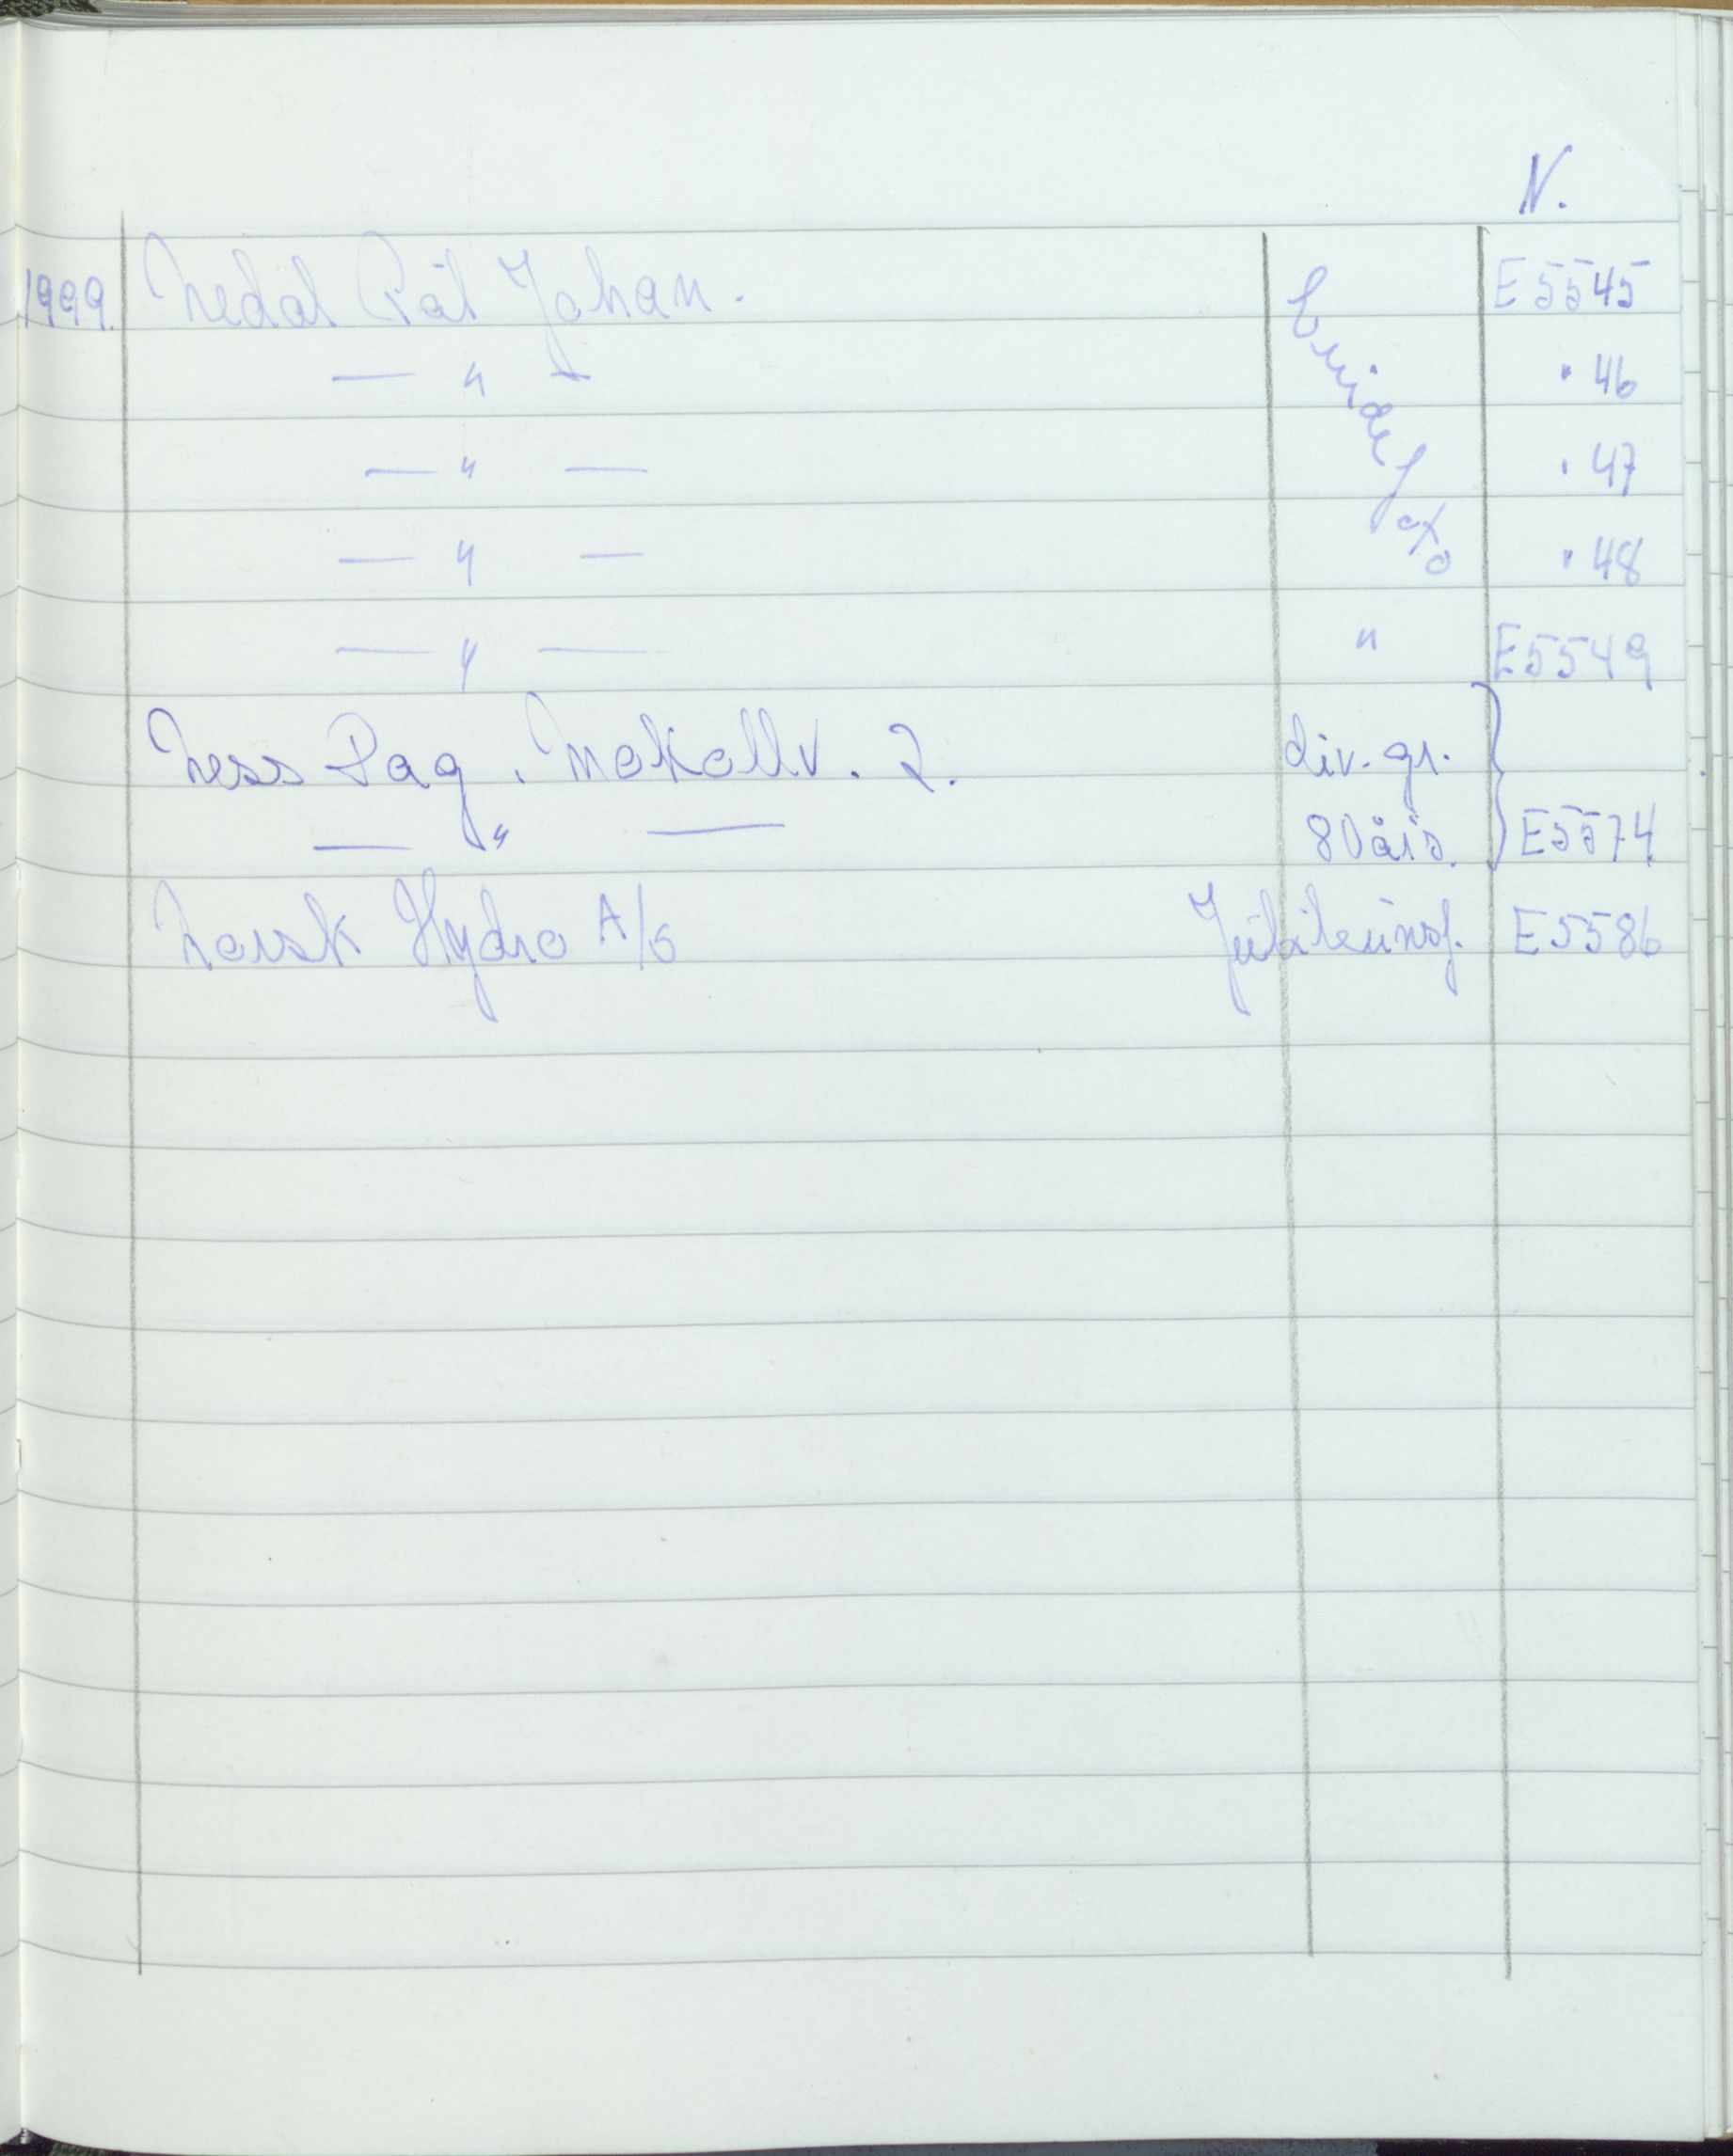 N.
1999. Nedal Pål Johan. E5545
— " — " 46
— " — " 47
— " — " 48
— " — " E5549
Ness Dag. Mokollv. 2. div. gr.
— " — 80års. E5574
Norsk Hydro A/S Jubileumsf. E5586